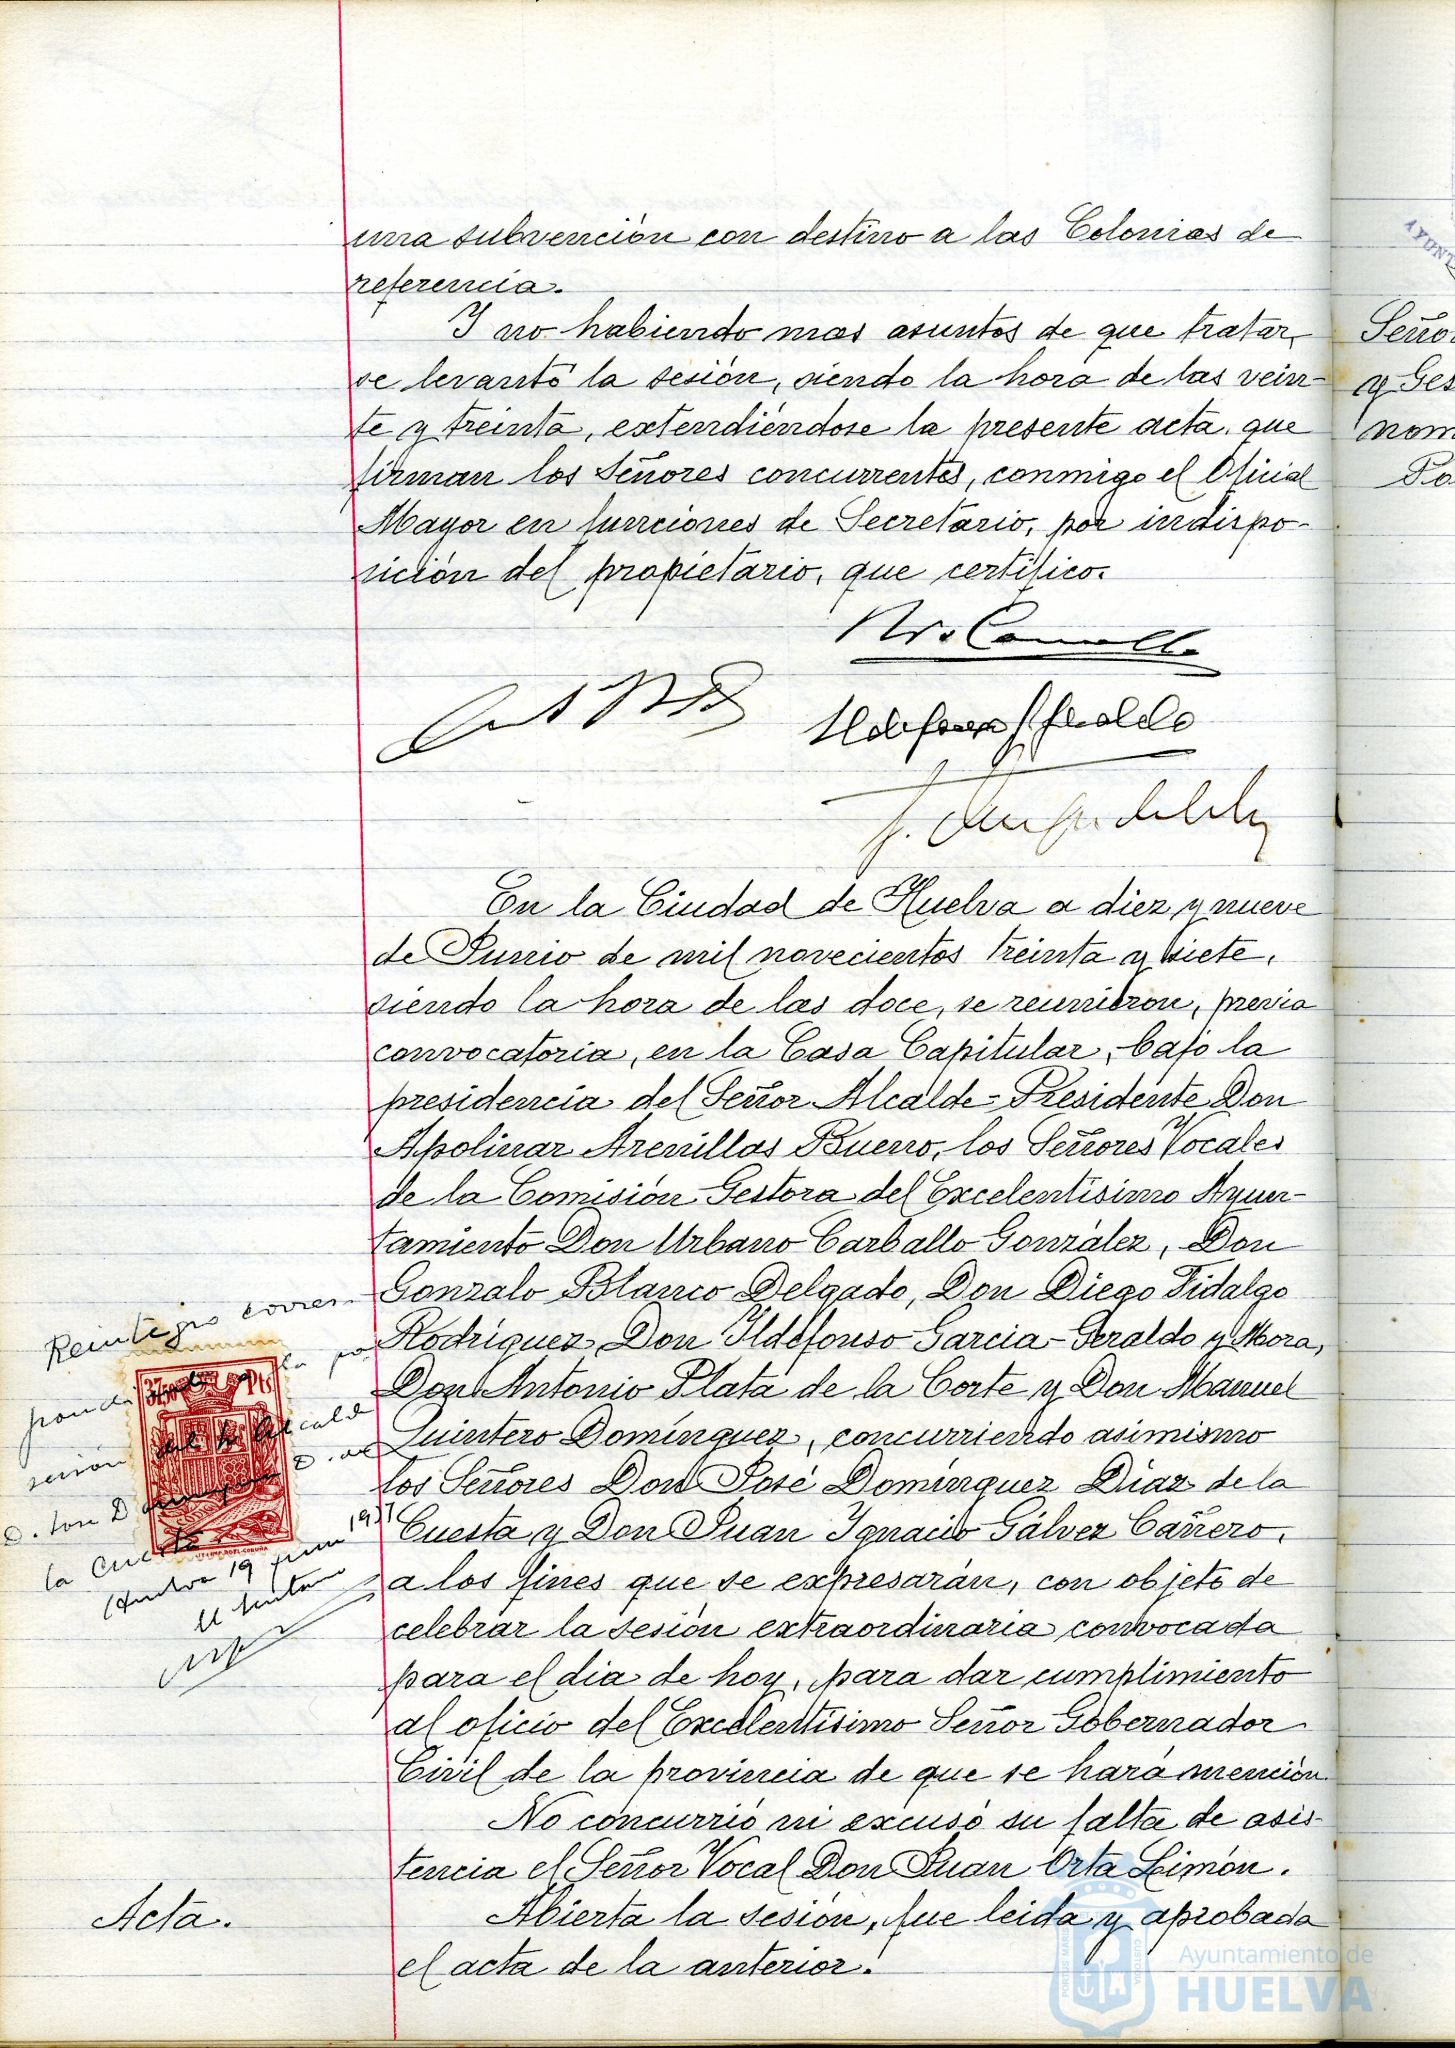 una subvención con destino a las Colonias de
referencia.
Y no habiendo mas asuntos de que tratar,
se levantó la sesión, siendo la hora de las vein-
te y treinta, extendiéndose la presente acta, que
firman los Señores concurrentes, conmigo el Oficial
Mayor en funciones de Secretario, por indispo-
sición del propietario, que certifico.
En la Ciudad de Huelva a diez y nueve
de Junio de mil novecientos treinta y siete,
siendo la hora de las doce, se reunieron, previa
convocatoria, en la Casa Capitular, bajo la
presidencia del Señor Alcalde-Presidente Don
Apolinar Arenillas Bueno, los Señores Vocales
de la Comisión Gestora del Excelentísimo Ayun-
tamiento Don Urbano Carballo González, Don
Gonzalo Blanco Delgado, Don Diego Fidalgo
Rodríguez, Don Ildefonso García-Geraldo y Mora,
Don Antonio Plata de la Corte y Don Manuel
Quintero Domínguez, concurriendo asimismo
los Señores Don José Domínguez Díaz de la
Cuesta y Don Juan Ignacio Gálvez Cañero,
a los fines que se expresarán, con objeto de
celebrar la sesión extraordinaria convocada
para el dia de hoy, para dar cumplimiento
al oficio del Excelentísimo Señor Gobernador
Civil de la provincia de que se hará mención.
No concurrió ni excusó su falta de asis-
tencia el Señor Vocal Don Juan Orta Limón.
Abierta la sesión, fue leida y aprobada
el acta de la anterior.
Reintegro corres-
pondiente a la po
sesión del Sr Alcalde
D. José Domínguez D. de
la Cuesta
Huelva 19 junio 1937
Acta.
Señor
y Ges
nom
Po
AYUNT
Ayuntamiento de
HUELVA